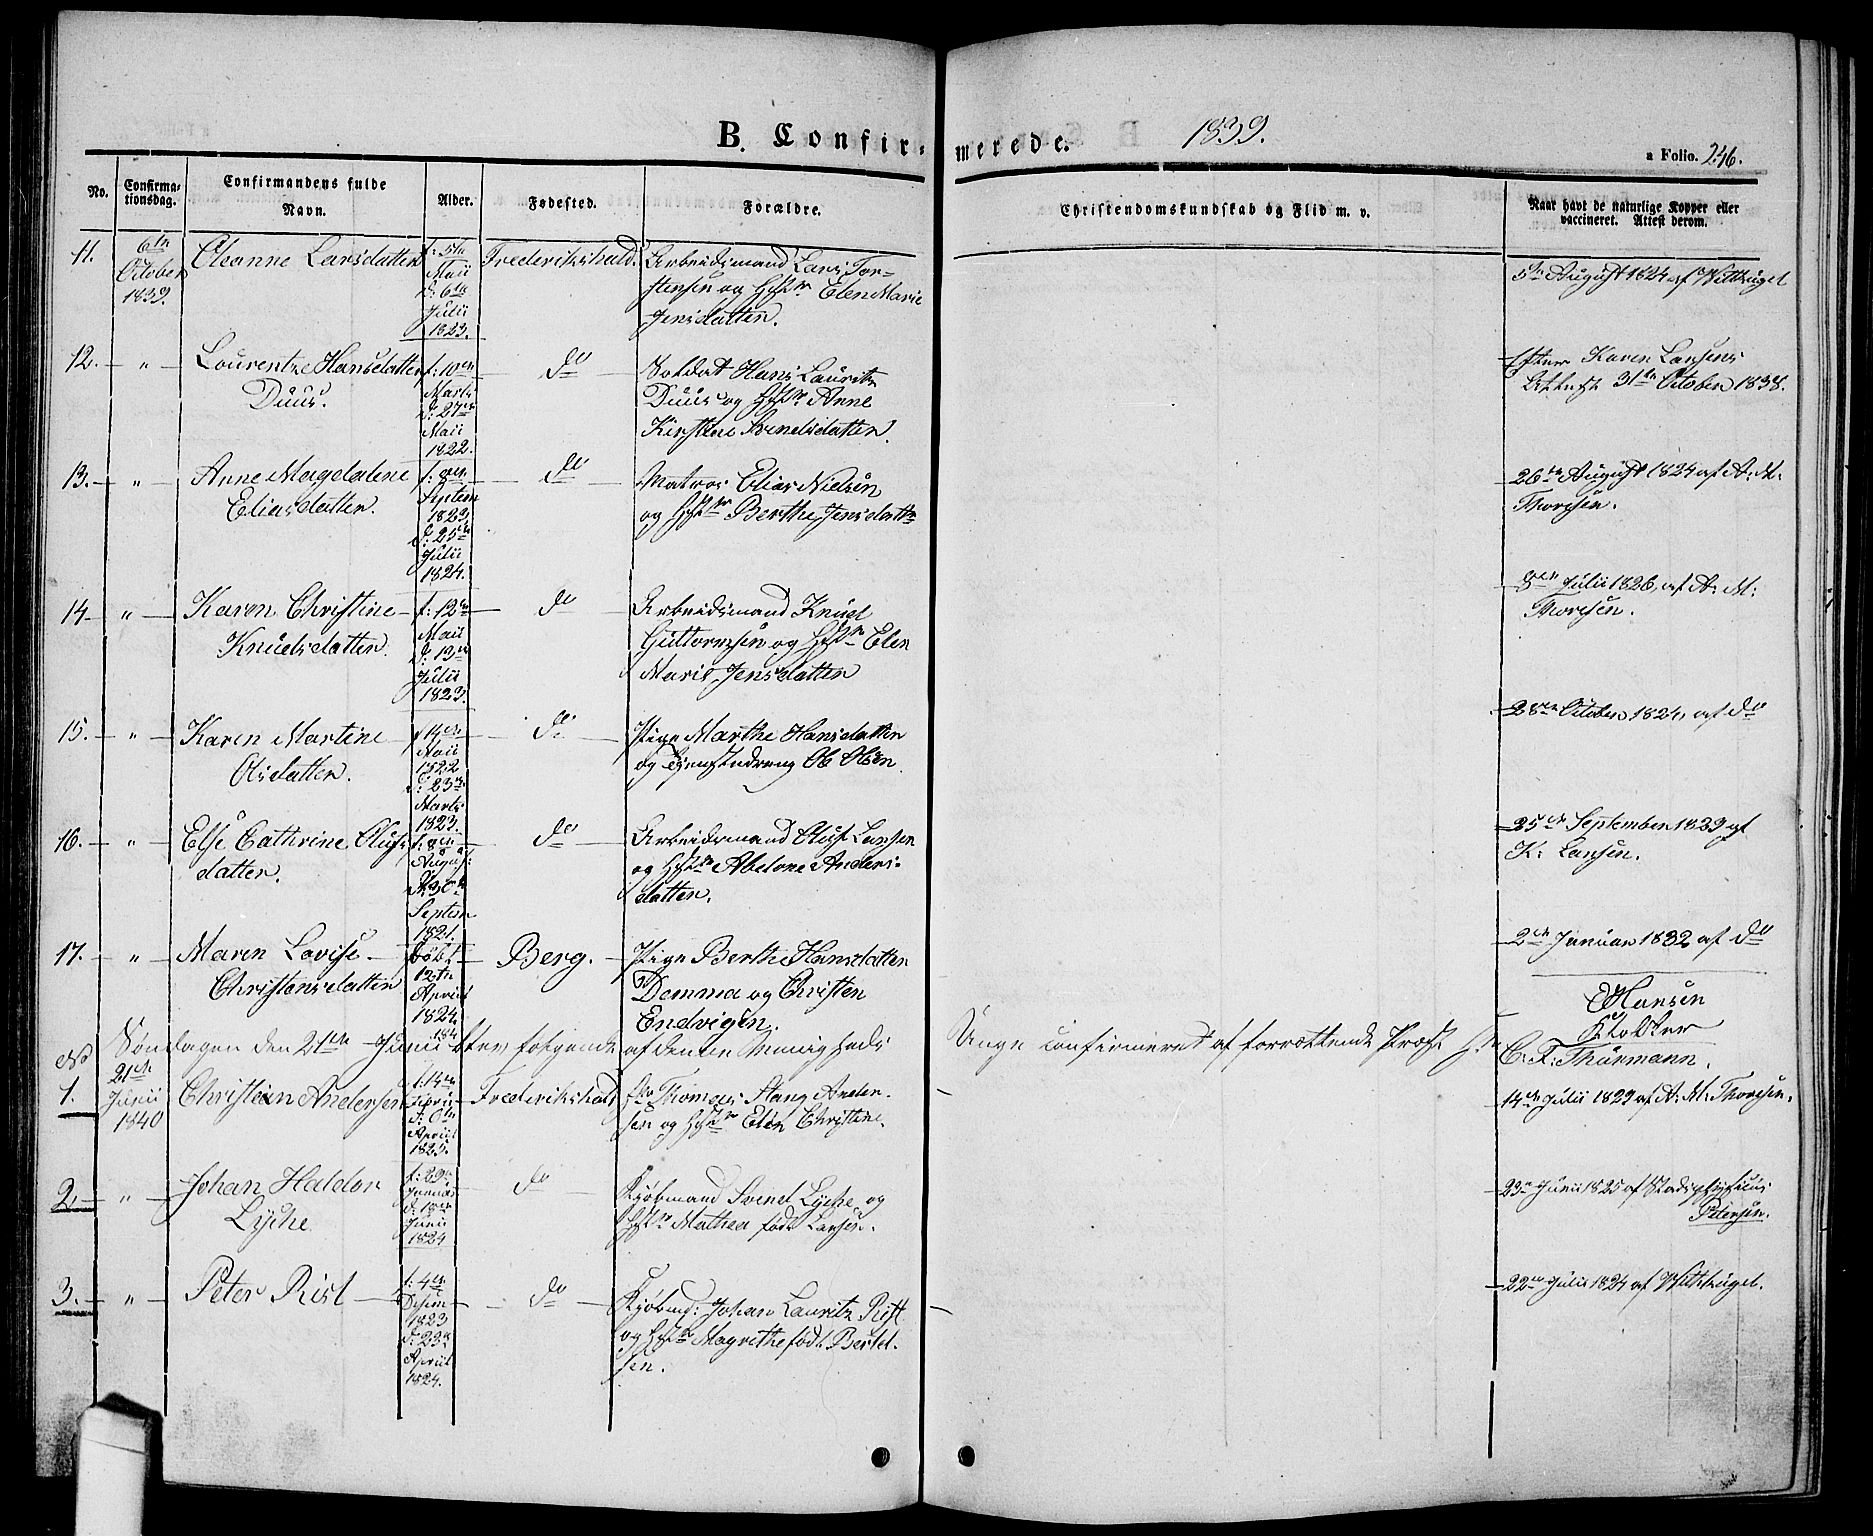 B. Confir-merede. 1839.
a Folio. 246.
No.
Confirma-
tionsdag.
Confirmandens fulde
Navn.
Alder.
Fødested.
Forældre.
Christendomskundskab og Flid m. v.
Naar havt de naturlige Kopper eller
vaccineret. Attest derom.
11. 6te October 1839. Oleanne Larsdatter
f: 5te Maii
d: 6te Julii 1823.
Frederikshald.
Arbeidsmand Lars Tor-
stensen og Hst: Elen Marie
Jensdatter.
5te August 1824 af Withugel
12. " Lourentze Hansdatter
Duus.
f: 10de Marts
d: 27de Maii 1822.
do
Soldat Hans Lauritz
Duus og Hst: Anne
Kirstine Svendsdatter.
Efter Karen Larsens
Attest 31te October 1838.
13. " Anne Magdalene
Eliasdatter.
f: Septem 1823
d: 25de Julii 1824.
do
Matros Elias Nielsen
og Hst: Berthe Jensdattr
26de August 1824 af A: M:
Thoresen.
14 " Karen Christine
Knudsdatter.
f: 12te Maii
d: 13de Julii 1823.
do
Arbeidsmand Knud
Guttormsen og Hst: Elen
Marie Jensdatter
Julii 1826, af A: M:
Thoresen.
15. " Karen Martine
Olsdatter.
f 14de Maii 1522
d: 23de Marts 1823.
do
Pige Marthe Hansdatter
og Tjenestedreng Ole Olsen
28de October 1824, af do
16. " Else Cathrine Olufs
datter.
f: August
d: 30te Septem 1821.
do
Arbeidsmand Oluf Larsen
og Hst: Abelone Anders-
datter.
25de September 1839 af
K: Larsen.
17. " Maren Lovise
Christensdatter
døbt 12te April 1824.
Berg.
Pige Berthe Hansdatter
Demma og Christen
Endvigsen.
2den Januar 1832 af do
Hansen
Klokker
Søndagen den 21de Junii 1840 blev følgende af denne Menigheds Unge confirmeret af forrettende Præst Hr.
C. F. Thurmann.
No 1. 21de Junii 1840 Christian Andersen
f: 14de
d: April 1825.
Frederikshald
Thomas Stang Ander-
sen og Hst: Elen Christine.
14de Julii 1829 af A: M: Thoresen.
2. " Johan Haldor
Lyche
f: 29 Januar
d: Junii 1824
do
Kjøbmand Svend Lyche og
Hst: Mathea født Larsen.
23de Junii 1825 af Stadsphysicus
Petersen.
3. " Peter Rist
f: 4de Desem 1823
d: 23de April 1824.
do
Kjøbmd: Johan Lauritz Rist
og Hst: Magrethe født Bertel-
sen.
22de Julii 1824 af Withugel.